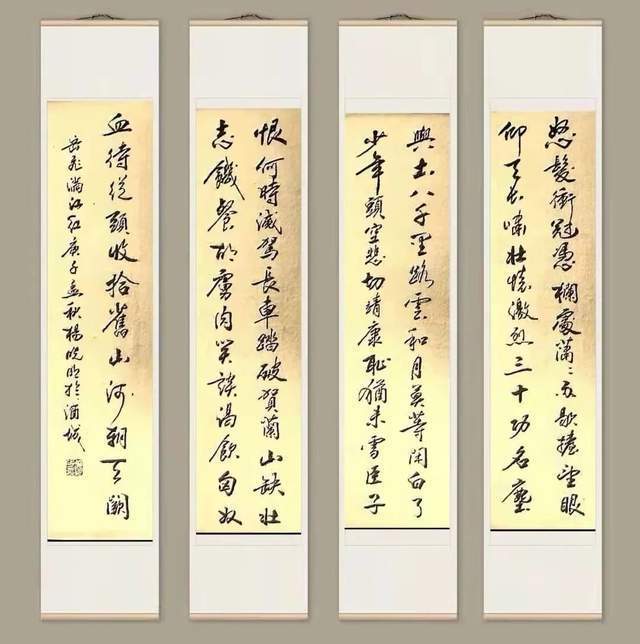 怒髮衝冠憑欄處蕭〻雨歇擡望眼
仰天長嘯壯懷激烈三十功名塵
與土八千里路雲和月莫等閑白了
少年頭空悲切靖康恥猶未雪臣子
恨何時滅駕長車踏破賀蘭山缺壯
志饑餐胡虜肉笑談渴飲匈奴
血待從頭收拾舊山河朝天闕
岳飛滿江紅庚子孟秋楊晓明於酒城